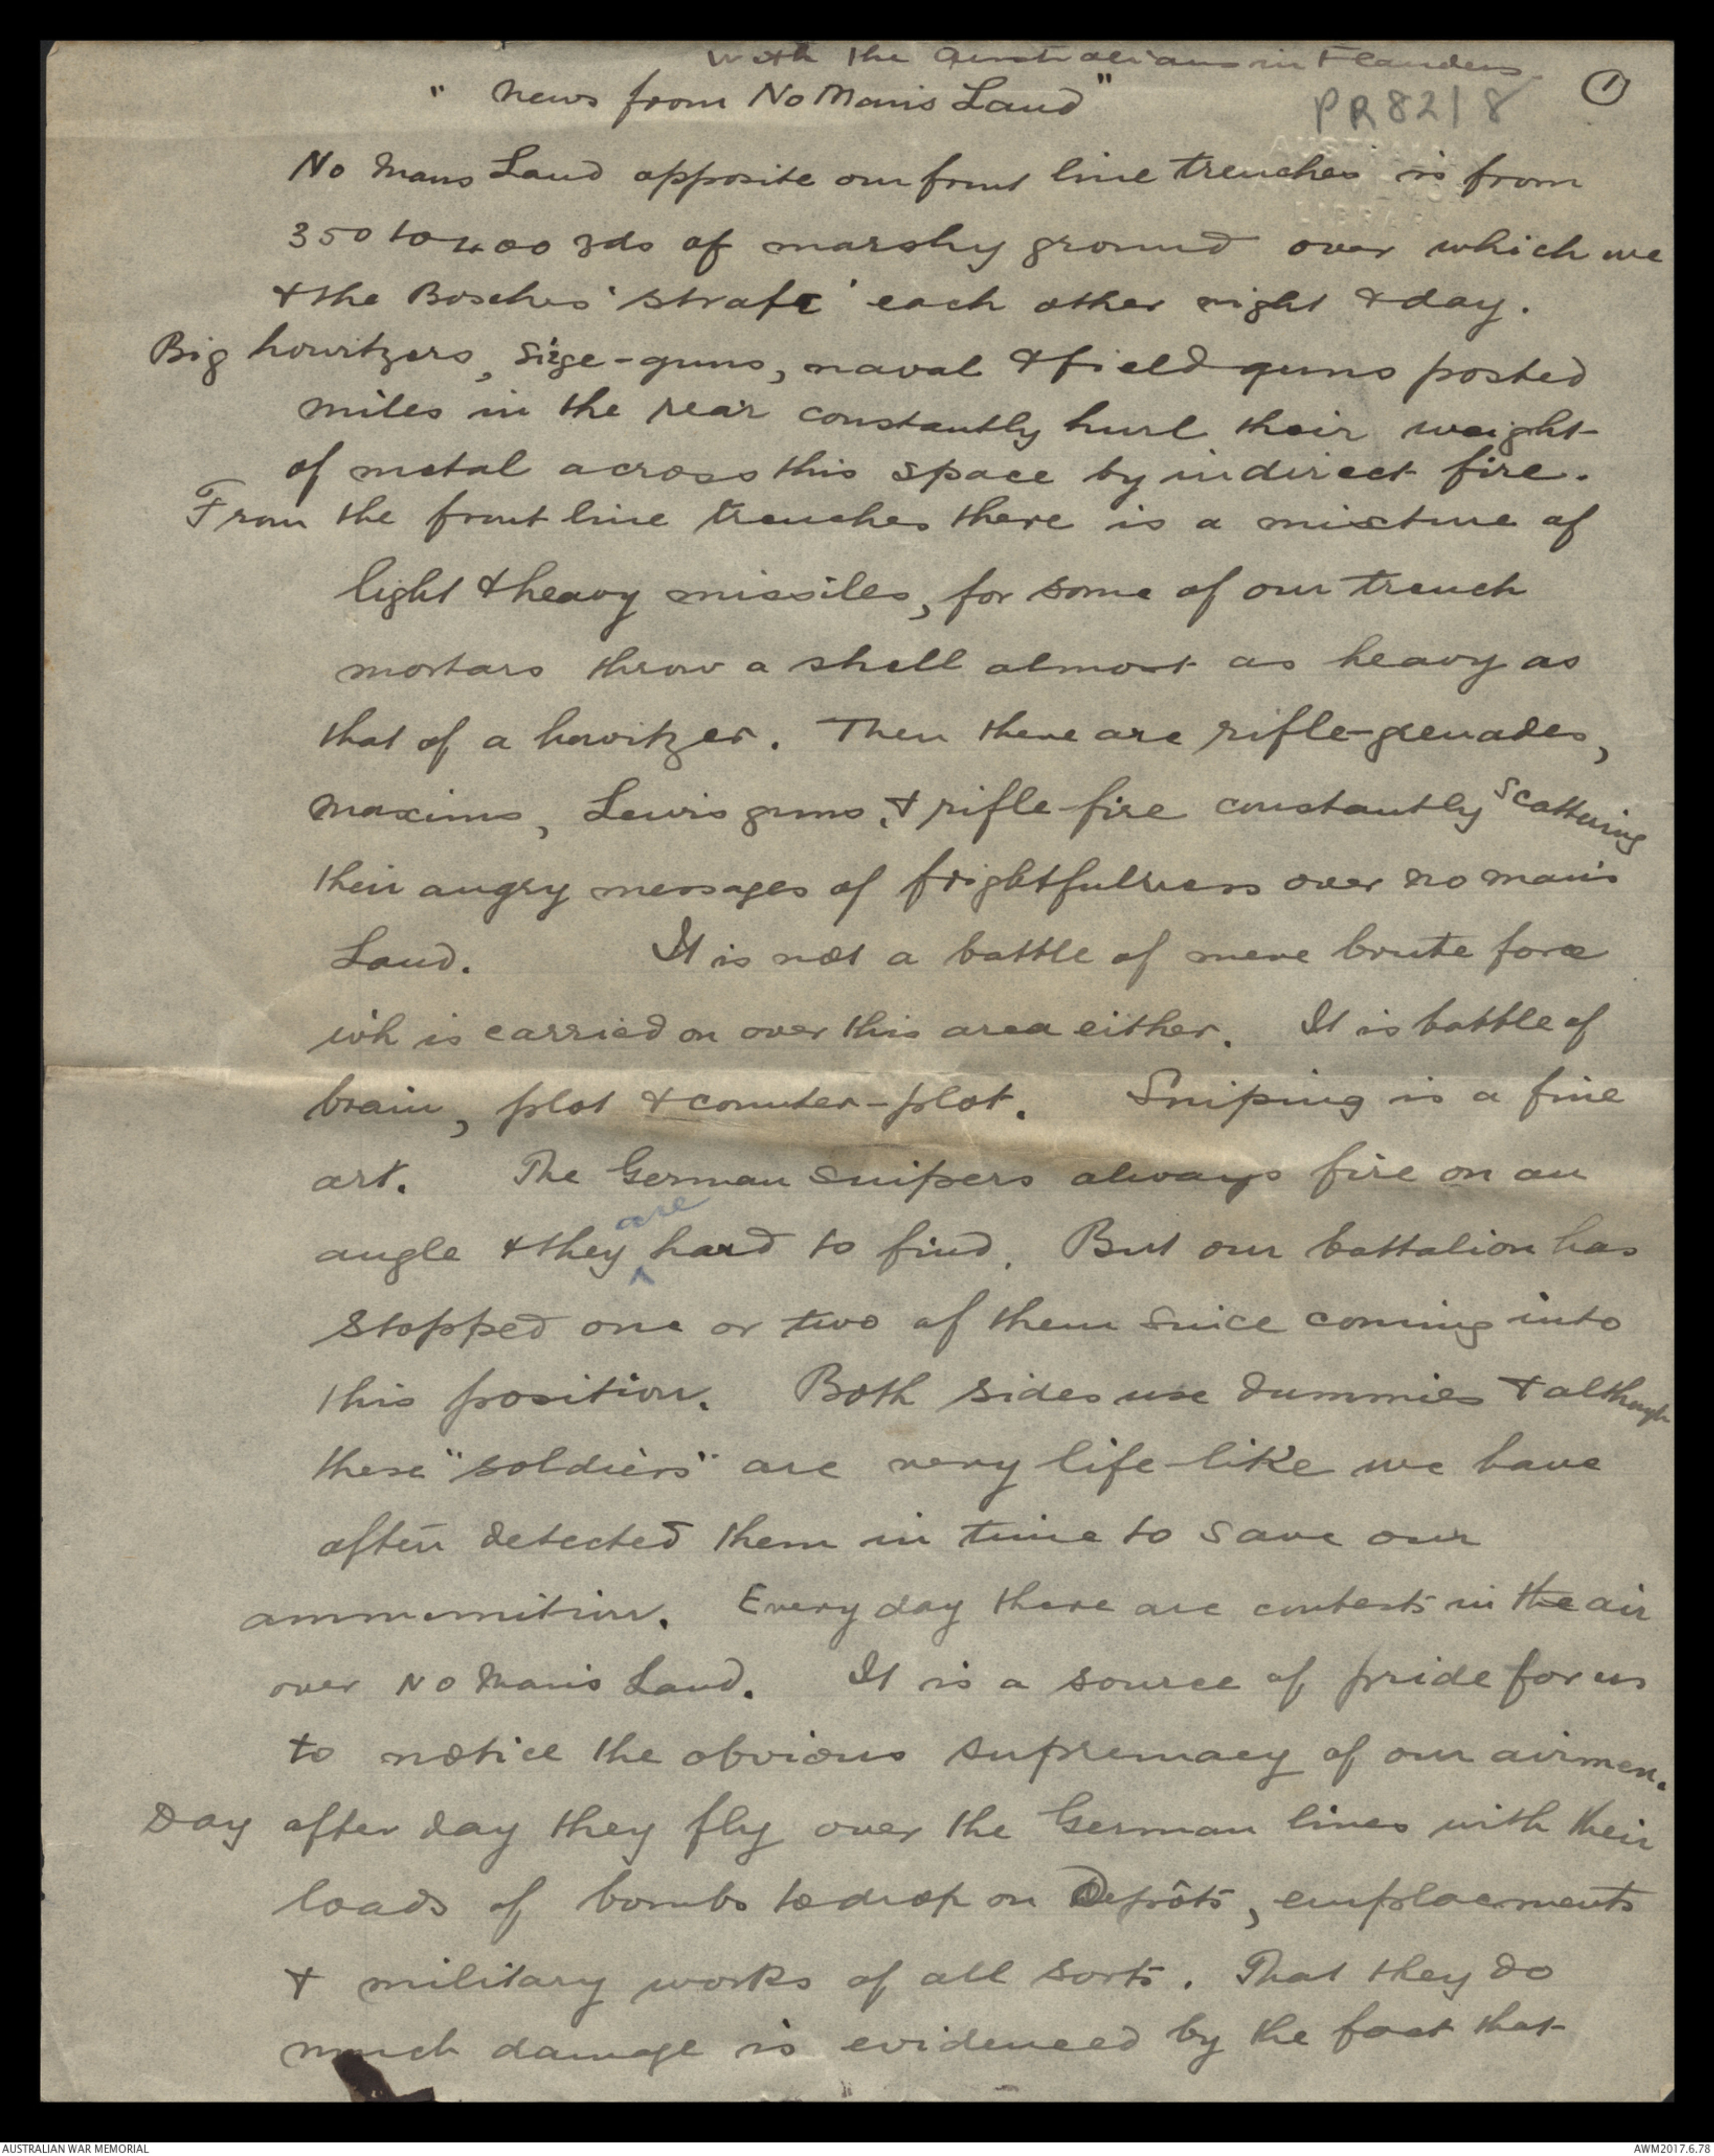 With the Australians in Flanders.
" News from No Man's Land" ①
PR82/8
No Mans Land opposite our front line trenches is from
350 to 400 yds of marshy ground over which we
& the Bosches 'strafe' each other night & day.
Big howitzers, siege-guns, naval & field guns posted
miles in the rear constantly hurl their weight
of metal across this space by indirect fire.
From the front line trenches there is a mixture of
light & heavy missiles, for some of our trench
mortars throw a shell almost as heavy as
that of a howitzer. Then there are rifle-grenades,
maxims, Lewis guns, & rifle-fire constantly scattering
their angry messages of frightfulness over no man's
Land. It is not a battle of mere brute force
wh is carried on over this area either. It is battle of
brain, plot & counter-plot. Sniping is a fine
art. The German snipers always fire on an
angle & they are hard to find. But our battalion has
stopped one or two of them since coming into
this position. Both sides use dummies & although
these "soldiers" are very life-like we have
often detected them in time to save our
ammunition. Every day there are contests in the air
over No Man's Land. It is a source of pride for us
to notice the obvious supremacy of our airmen.
Day after day they fly over the German lines with their
loads of bombs to drop on Depôts, emplacements
& military works of all sorts. That they do
much damage is evidenced by the fact that
AUSTRALIAN WAR MEMORIAL
AWM2017.6.78